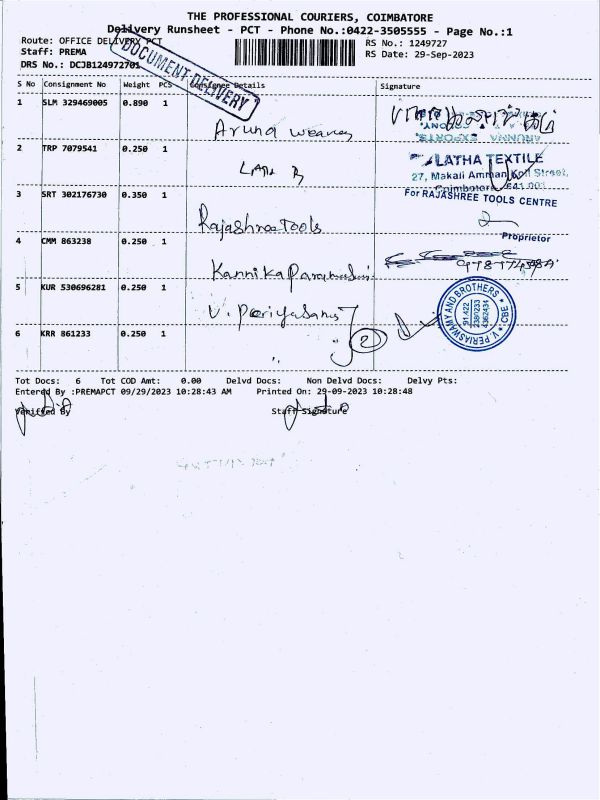 THE PROFESSIONAL COURIERS, COIMBATORE
Delivery Runsheet - PCT - Phone No.:0422-3505555 - Page No.:1
Route: OFFICE DELIVERY PCT
RS No.: 1249727
Staff: PREMA
RS Date: 29-Sep-2023
DRS No.: DCJB124972701
DOCUMENT DELIVERY
S No Consignment No Weight PCS Consignee Details Signature
1 SLM 329469005 0.890 1
Aruna
2 TRP 7079541 0.250 1
LATHA TEXTILE
27, Makali Amman Koil Street,
Coimbatore 641 001
3 SRT 302176730 0.350 1
For RAJASHREE TOOLS CENTRE
Rajashree Tools
Proprietor
4 CMM 863238 0.250 1
Kannika
5 KUR 530696281 0.250 1
V. Periyasamy
V. PERIASWAMY AND BROTHERS * CBE *
6 KRR 861233 0.250 1
2
Tot Docs: 6 Tot COD Amt: 0.00 Delvd Docs: Non Delvd Docs: Delvy Pts:
Entered By :PREMAPCT 09/29/2023 10:28:43 AM Printed On: 29-09-2023 10:28:48
Verified By Staff Signature